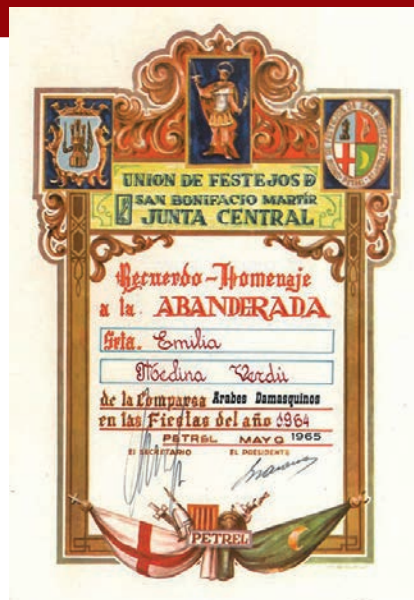 UNION DE FESTEJOS D
SAN BONIFACIO MARTÍR
JUNTA CENTRAL
Recuerdo-Homenaje
a la ABANDERADA
Srta. Emilia
Medina Verdú
de la Comparsa Arabes Damasquinos
en las Fiestas del año 1964
PETREL MAYO 1965
EL SECRETARIO EL PRESIDENTE
PETREL